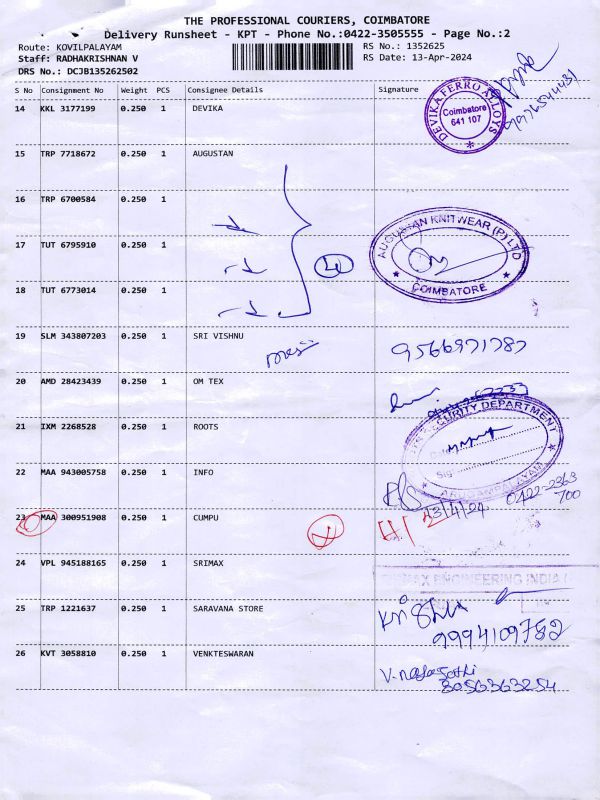 THE PROFESSIONAL COURIERS, COIMBATORE
Delivery Runsheet - KPT - Phone No.:0422-3505555 - Page No.:2
Route: KOVILPALAYAM
RS No.: 1352625
Staff: RADHAKRISHNAN V
RS Date: 13-Apr-2024
DRS No.: DCJB135262502
S No Consignment No Weight PCS Consignee Details Signature
14 KKL 3177199 0.250 1 DEVIKA
DEVIKA FERRO ALLOYS
Coimbatore
641 107
15 TRP 7718672 0.250 1 AUGUSTAN
16 TRP 6700584 0.250 1
17 TUT 6795910 0.250 1
AUGUSTAN KNITWEAR (P) LTD
COIMBATORE
18 TUT 6773014 0.250 1
19 SLM 343807203 0.250 1 SRI VISHNU
9566971787
20 AMD 28423439 0.250 1 OM TEX
21 IXM 2268528 0.250 1 ROOTS
SECURITY DEPARTMENT
22 MAA 943005758 0.250 1 INFO
13/4/24 0422-2363
700
23 MAA 300951908 0.250 1 CUMPU
24 VPL 945188165 0.250 1 SRIMAX
ENGINEERING INDIA
25 TRP 1221637 0.250 1 SARAVANA STORE
9994109782
26 KVT 3058810 0.250 1 VENKTESWARAN
8056363254